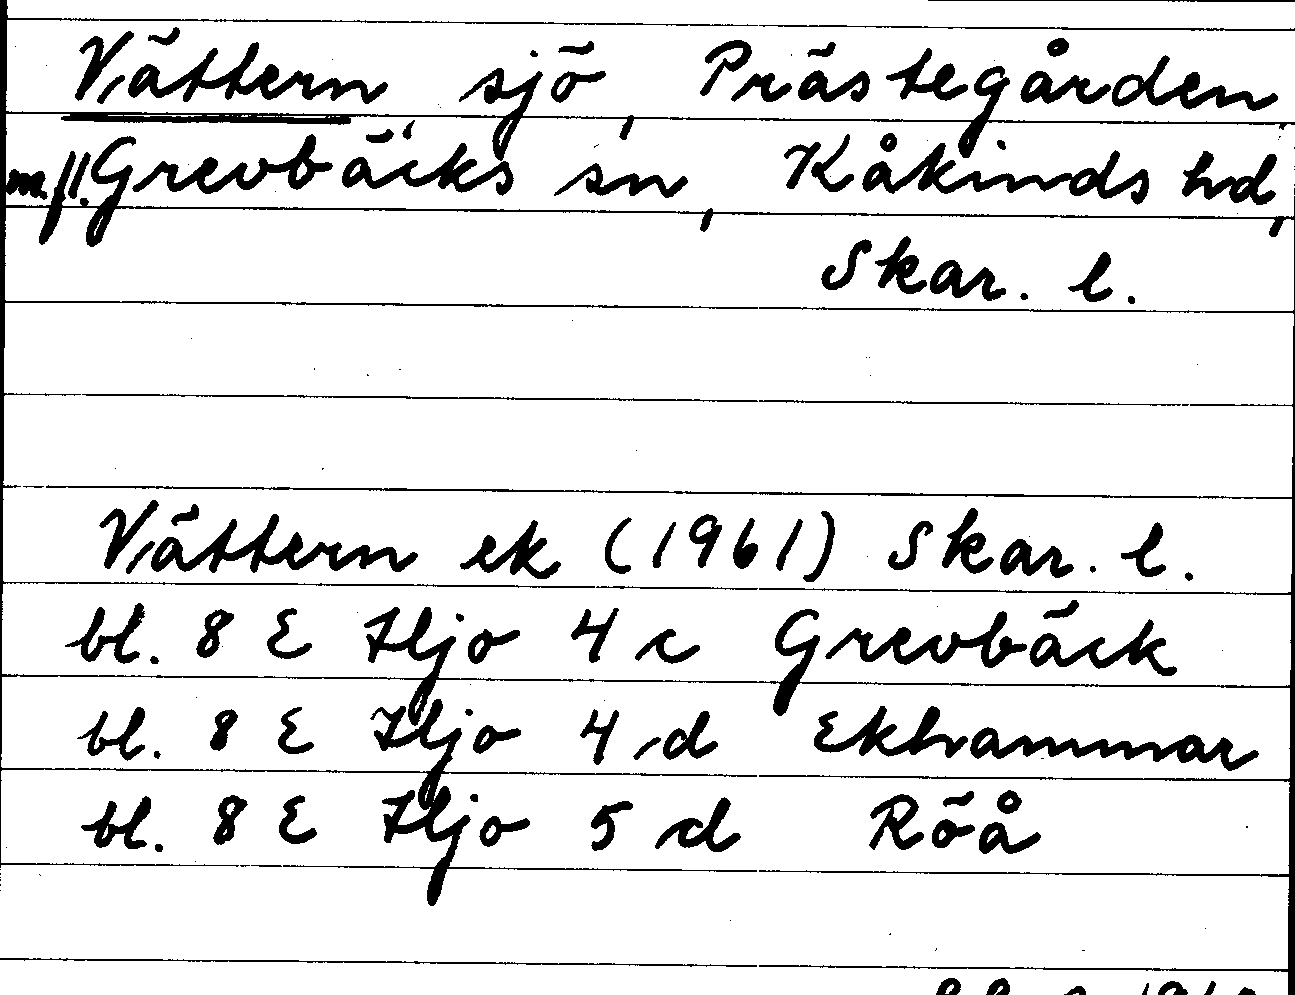 Vättern, sjö, Prästegården
m.fl. Grevbäcks sn, Kåkinds hd,
Skar. l.
Vättern ek (1961) Skar. l.
bl. 8 E Hjo 4 c Grevbäck
bl. 8 E Hjo 4 d Ekhammar
bl. 8 E Hjo 5 d Röå